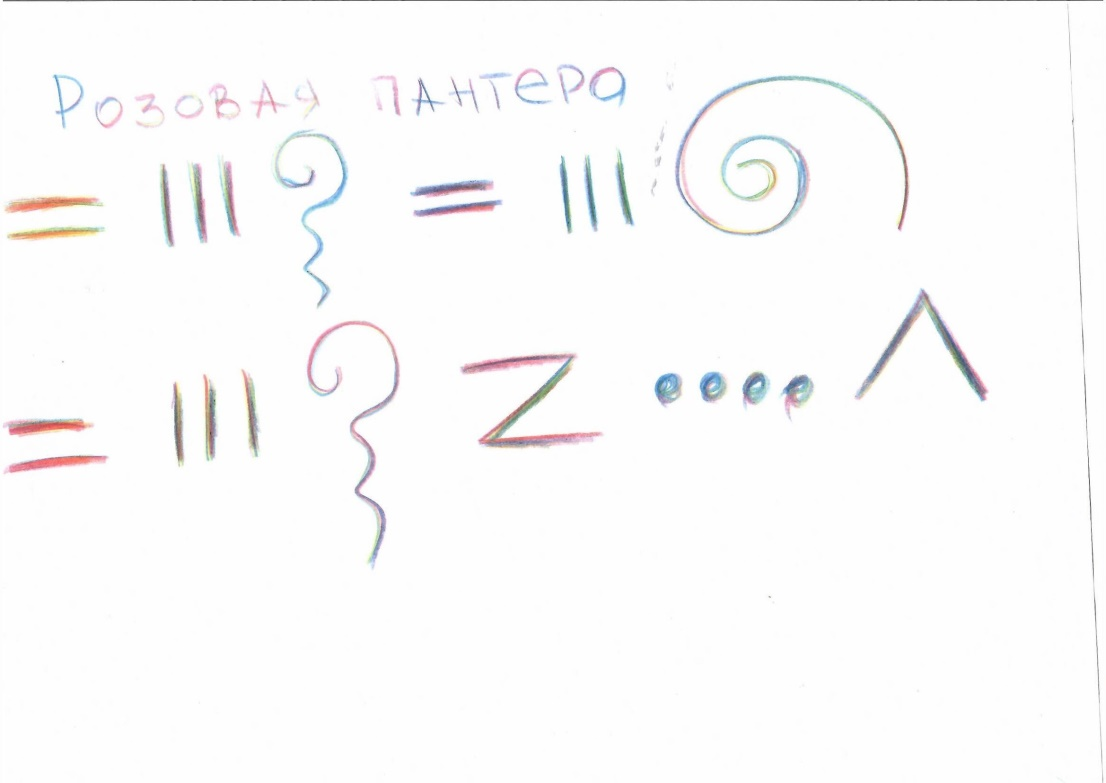 РОЗОВАЯ ПАНТЕРА